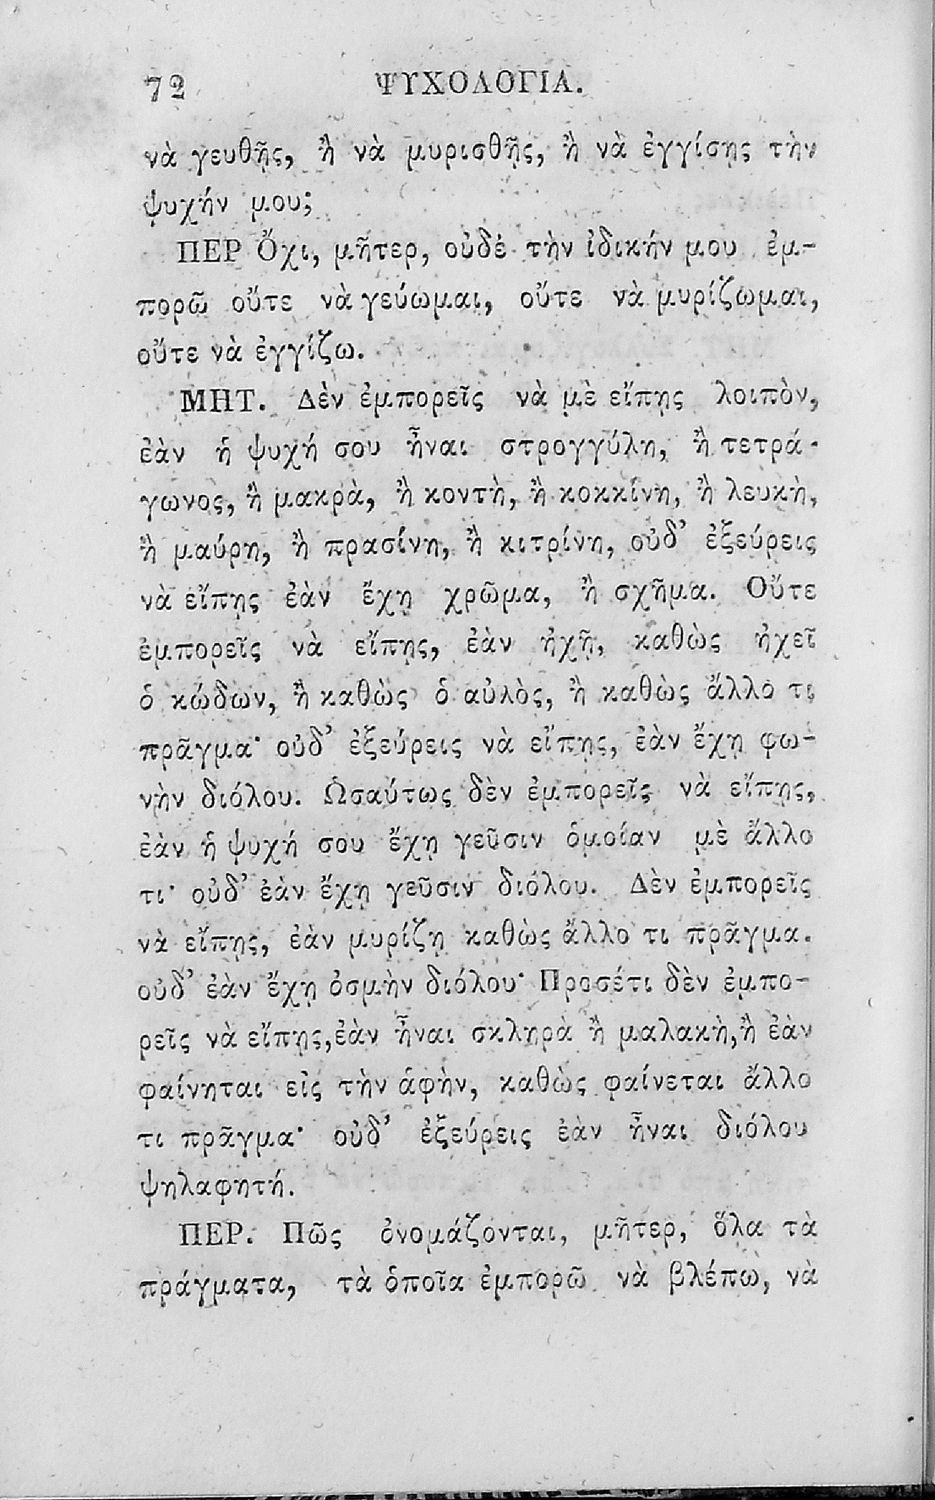 72 ΨΥΧΟΛΟΓΙΑ.
νὰ γευθῇς, ἢ νὰ μυρισθῇς, ἢ νὰ ἐγγίσῃς τὴν
ψυχήν μου;
ΠΕΡ Ὄχι, μῆτερ, οὐδὲ τὴν ἰδικήν μου ἐμ-
πορῶ οὔτε νὰ γεύωμαι, οὔτε νὰ μυρίζωμαι,
οὔτε νὰ ἐγγίζω.
ΜΗΤ. Δὲν ἐμπορεῖς νὰ μὲ εἴπῃς λοιπὸν,
ἐὰν ἡ ψυχή σου ἦναι στρογγύλη, ἢ τετρά-
γωνος, ἢ μακρὰ, ἢ κοντὴ, ἢ κοκκίνη, ἢ λευκὴ,
ἢ μαύρη, ἢ πρασίνη, ἢ κιτρίνη, οὐδ' ἐξεύρεις
νὰ εἴπῃς ἐὰν ἔχῃ χρῶμα, ἢ σχῆμα. Οὔτε
ἐμπορεῖς νὰ εἴπῃς, ἐὰν ἠχῇ, καθὼς ἠχεῖ
ὁ κώδων, ἢ καθὼς ὁ αὐλὸς, ἢ καθὼς ἄλλο τι
πρᾶγμα· οὐδ' ἐξεύρεις νὰ εἴπῃς, ἐὰν ἔχῃ φω-
νὴν διόλου. Ὡσαύτως δὲν ἐμπορεῖς νὰ εἴπῃς,
ἐὰν ἡ ψυχή σου ἔχῃ γεῦσιν ὁμοίαν μὲ ἄλλο
τι· οὐδ' ἐὰν ἔχῃ γεῦσιν διόλου. Δὲν ἐμπορεῖς
νὰ εἴπῃς, ἐὰν μυρίζῃ καθὼς ἄλλο τι πρᾶγμα.
οὐδ' ἐὰν ἔχῃ ὀσμὴν διόλου· Προσέτι δὲν ἐμπο-
ρεῖς νὰ εἴπῃς, ἐὰν ἦναι σκληρὰ ἢ μαλακὴ, ἢ ἐὰν
φαίνηται εἰς τὴν ἁφὴν, καθὼς φαίνεται ἄλλο
τι πρᾶγμα· οὐδ' ἐξεύρεις ἐὰν ἦναι διόλου
ψηλαφητή.
ΠΕΡ. Πῶς ὀνομάζονται, μῆτερ, ὅλα τὰ
πράγματα, τὰ ὁποῖα ἐμπορῶ νὰ βλέπω, νὰ